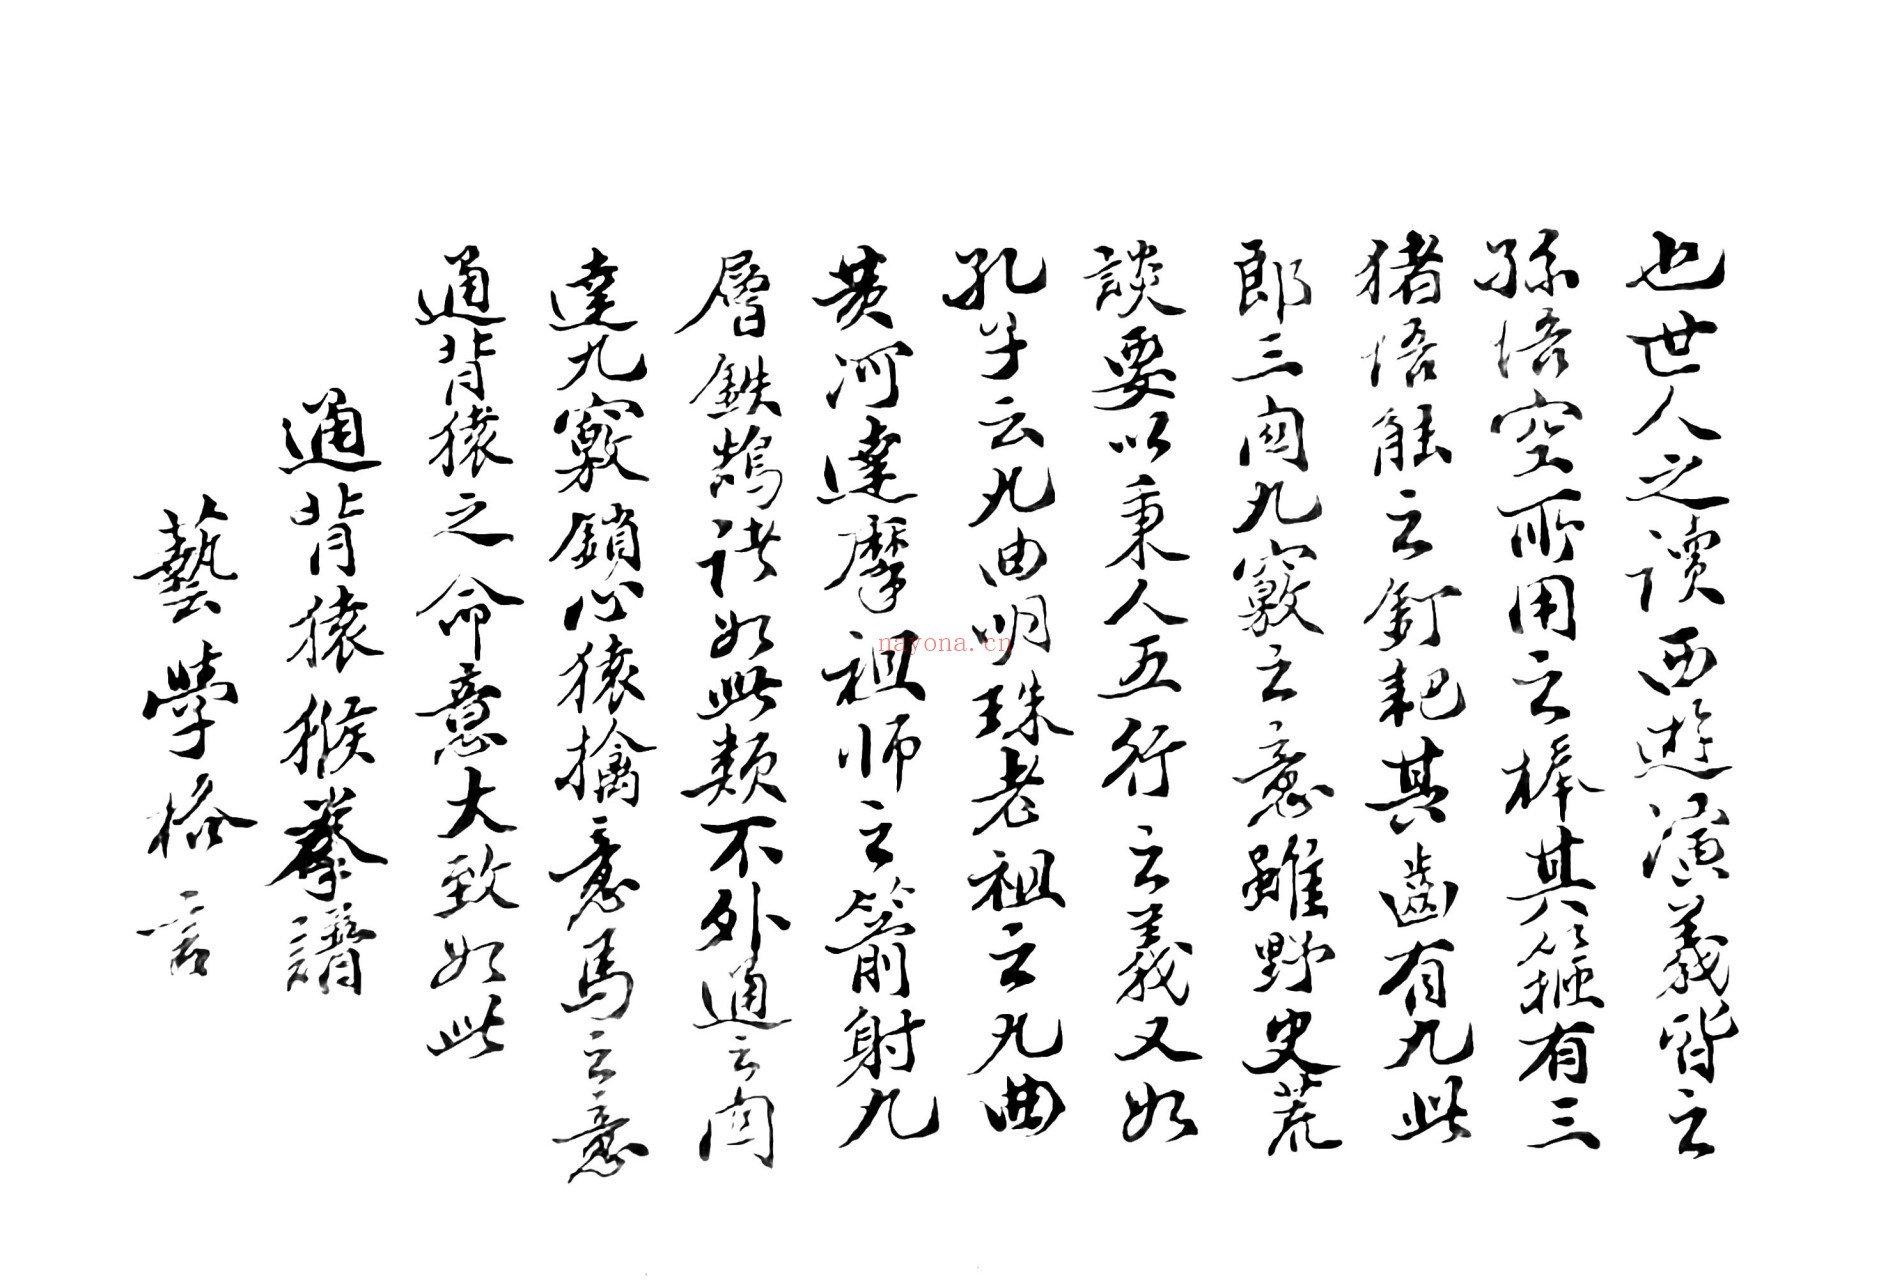 也世人之读西遊演義皆之
孫悟空所用之棒其箍有三
猪悟能之釘耙其齒有九此
郎三関九竅之意雖野史荒
談要以秉人五行之義又如
孔子云九曲明珠老祖之九曲
黄河達摩祖师之箭射九
層鉄鹊諸如此類不外通之関
達九竅鎖心猿擒意馬之意
通背猿之命意大致如此
通背猿猴拳譜
藝學格言
nayona.cn